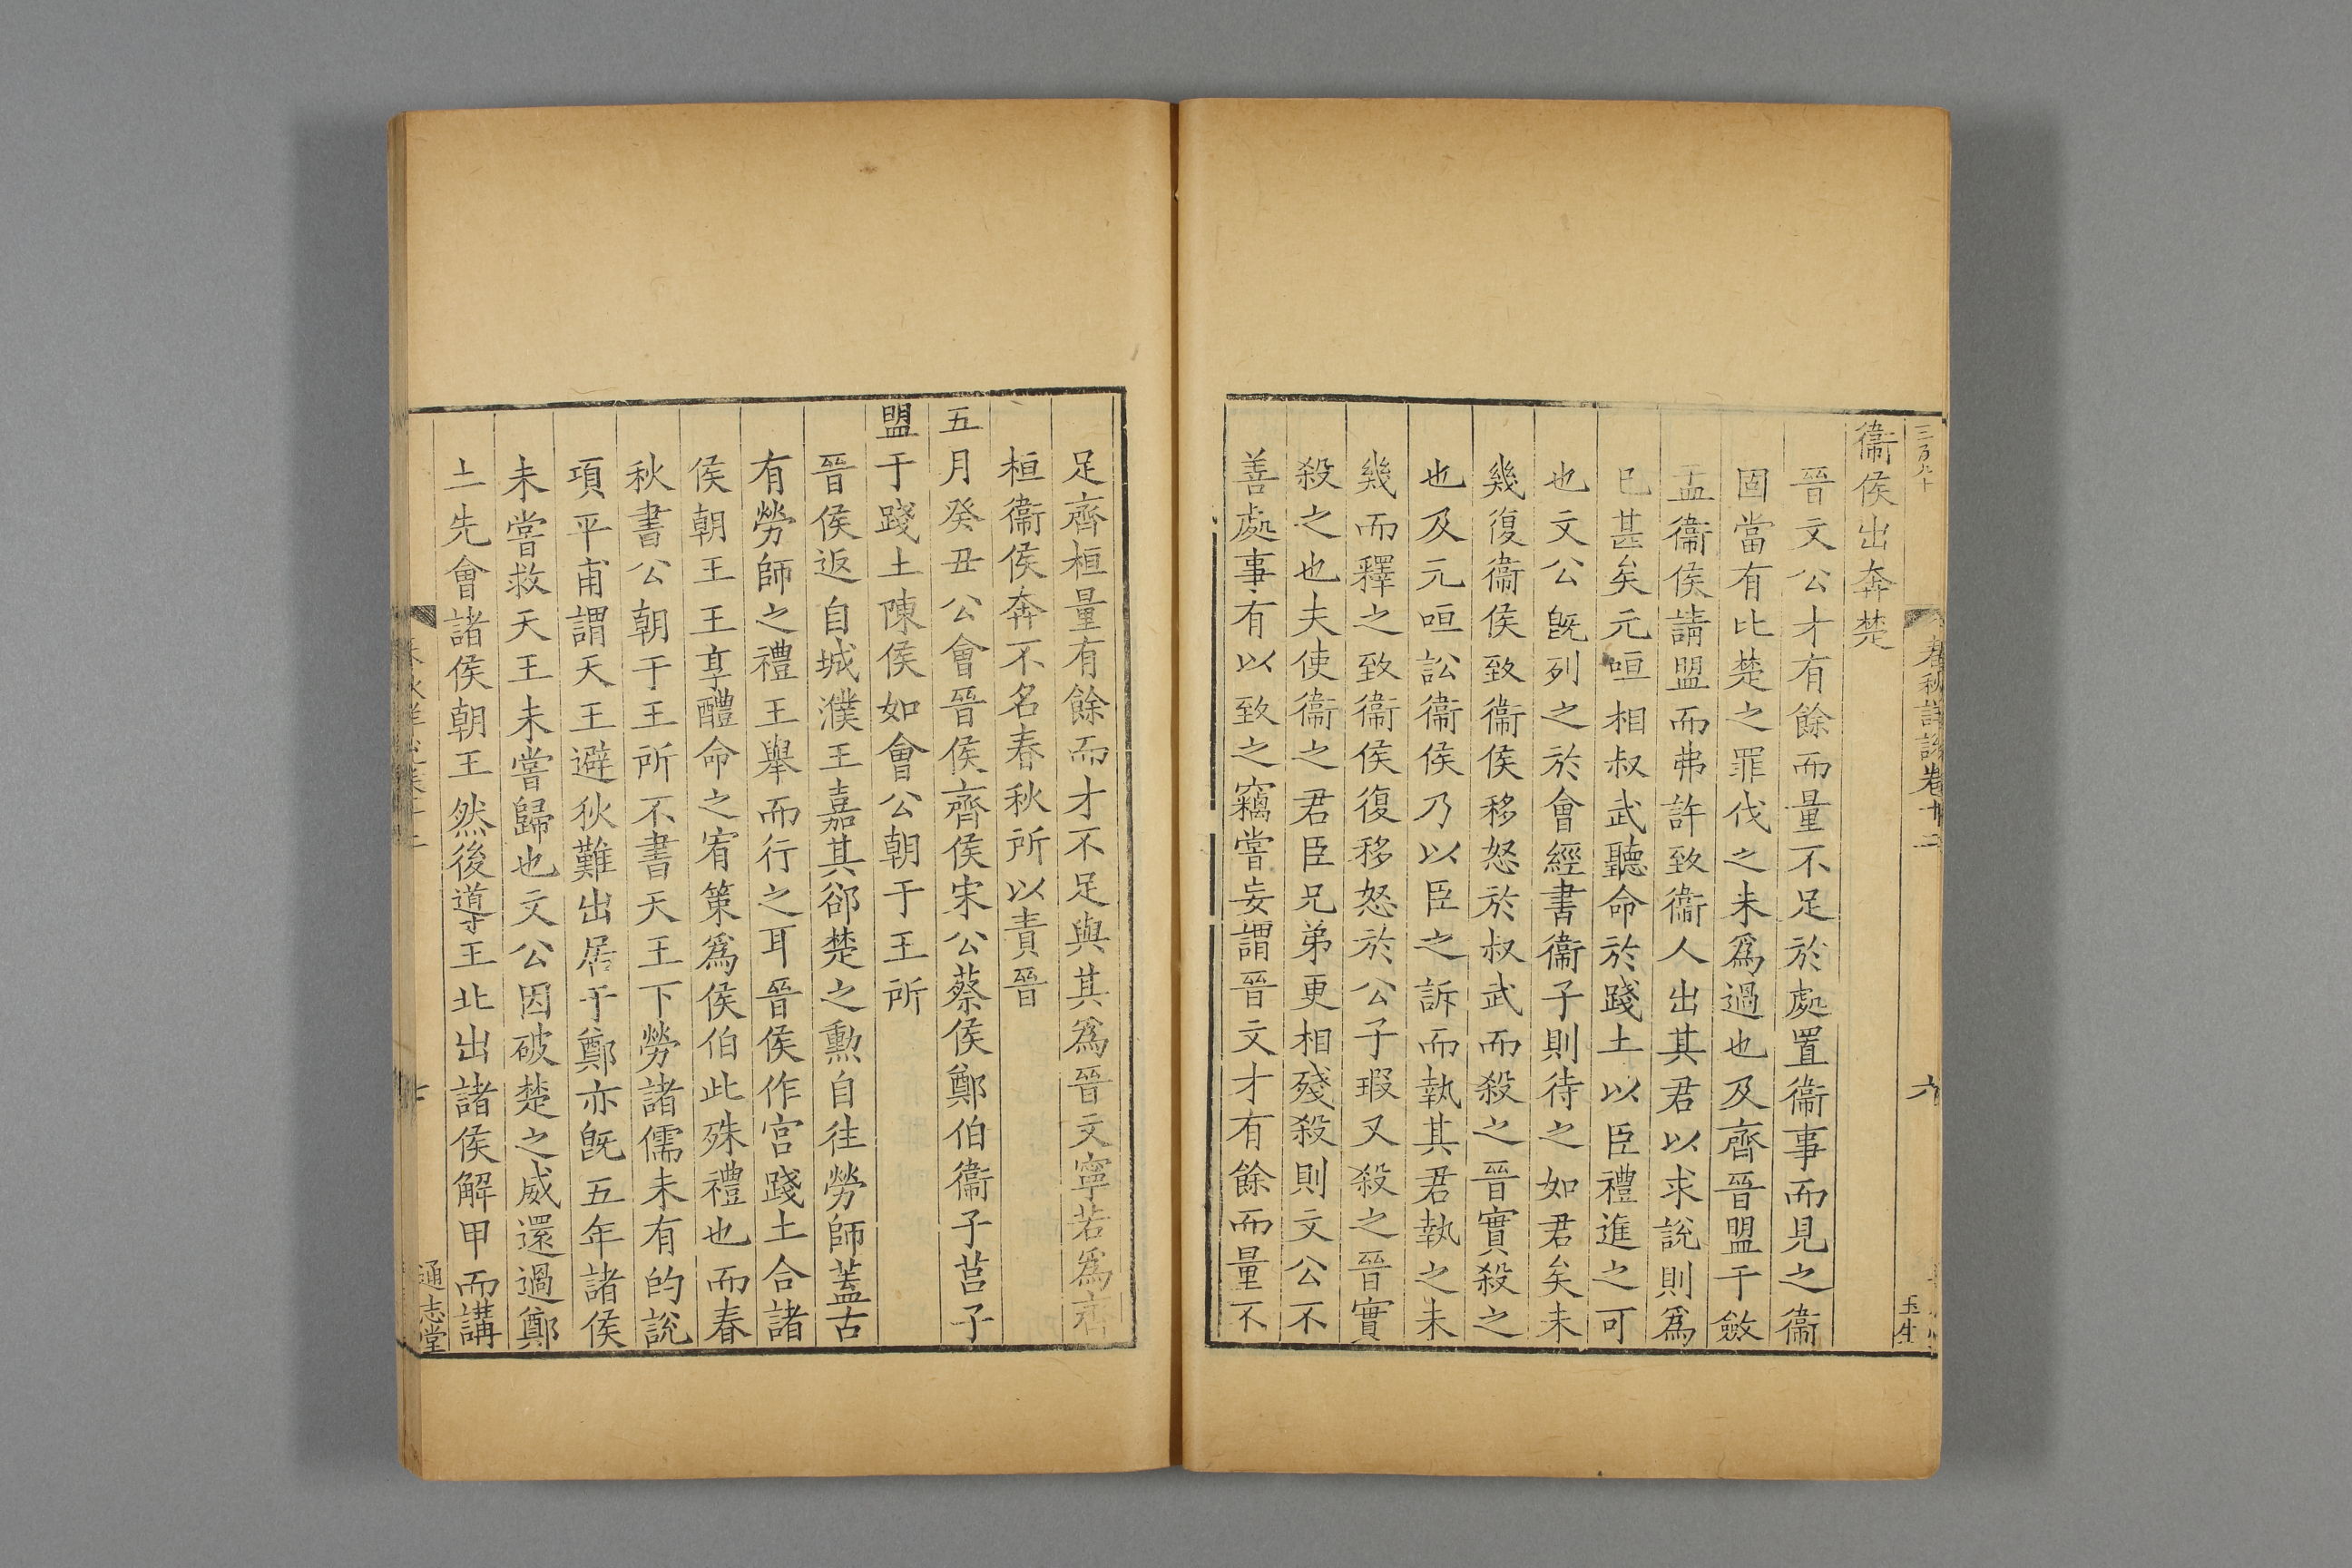 衞侯出奔楚
晉文公才有餘而量不足於處置衞事而見之衞
固當有比楚之罪伐之未爲過也及齊晉盟于斂
盂衞侯請盟而弗許致衞人出其君以求說則爲
已甚矣元咺相叔武聽命於踐土以臣禮進之可
也文公旣列之於會經書衞子則待之如君矣未
幾復衞侯致衞侯移怒於叔武而殺之晉實殺之
也及元咺訟衞侯乃以臣之訴而執其君執之未
幾而釋之致衞侯復移怒於公子瑕又殺之晉實
殺之也夫使衞之君臣兄弟更相殘殺則文公不
善處事有以致之竊嘗妄謂晉文才有餘而量不
足齊桓量有餘而才不足與其爲晉文寧若爲齊
桓衞侯奔不名春秋所以責晉
五月癸丑公會晉侯齊侯宋公蔡侯鄭伯衞子莒子
盟于踐土陳侯如會公朝于王所
晉侯返自城濮王嘉其郤楚之勲自往勞師蓋古
有勞師之禮王舉而行之耳晉侯作宮踐土合諸
侯朝王王享醴命之宥策爲侯伯此殊禮也而春
秋書公朝于王所不書天王下勞諸儒未有的說
項平甫謂天王避狄難出居于鄭亦旣五年諸侯
未嘗救天王未嘗歸也文公因破楚之威還過鄭
土先會諸侯朝王然後導王北出諸侯解甲而講
通志堂